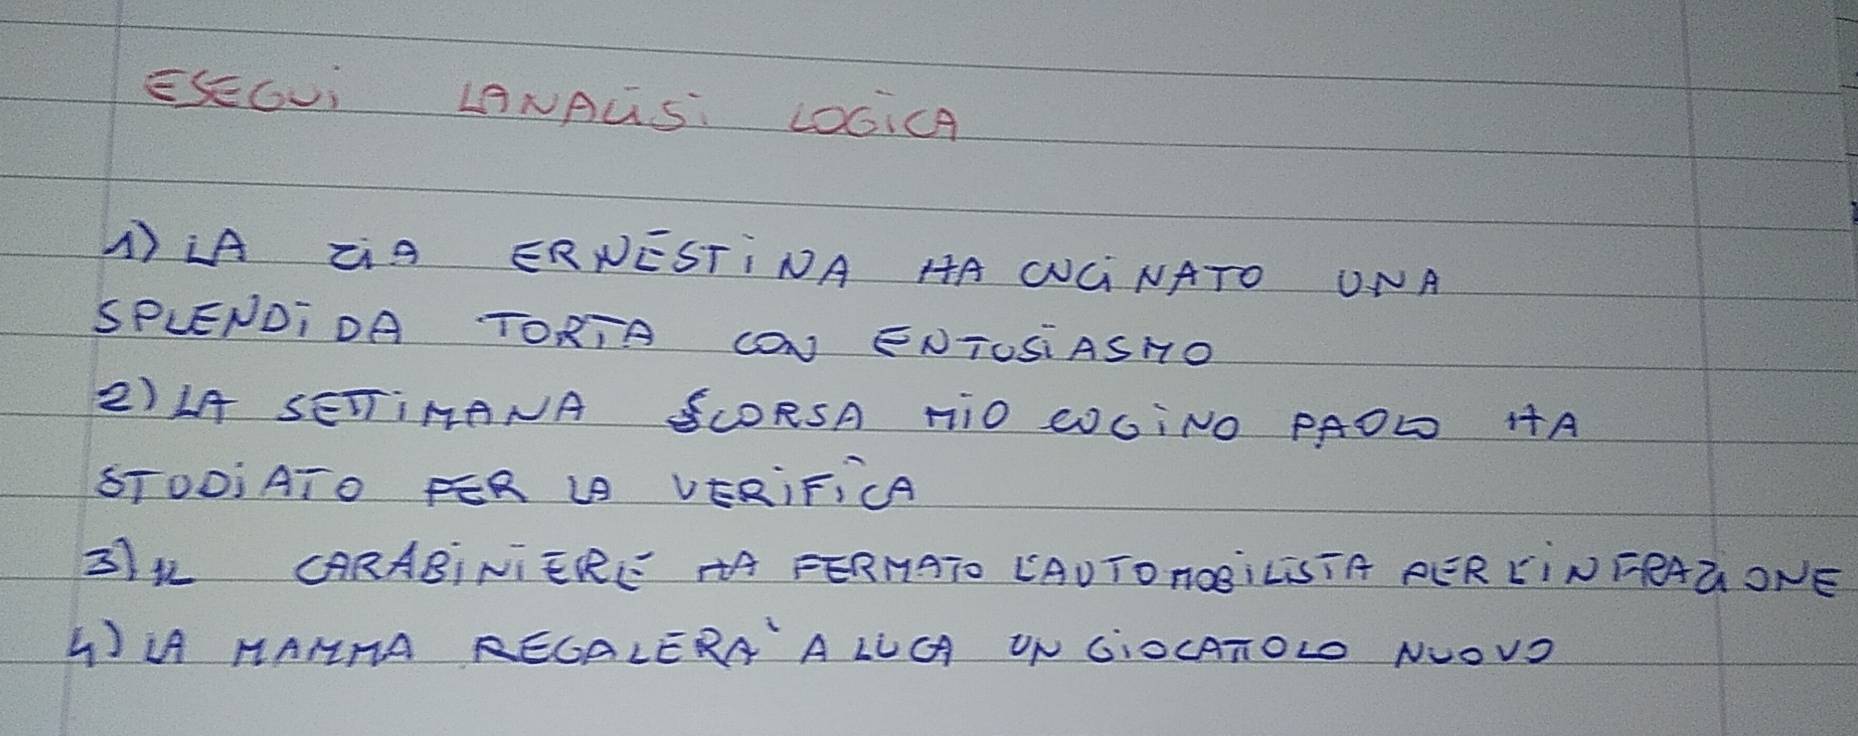 ESEGUI LANALISI LOGICA
1) LA ZIA ERNESTINA HA CUCINATO UNA
SPLENDIDA TORTA CON ENTUSIASMO
2) LA SETTIMANA SCORSA MIO CUGINO PAOLO HA
STUDIATO PER LA VERIFICA
3) IL CARABINIERE HA FERMATO L'AUTOMOBILISTA PER L'INFRAZIONE
4) LA MAMMA REGALERA' A LUCA UN GIOCATTOLO NUOVO